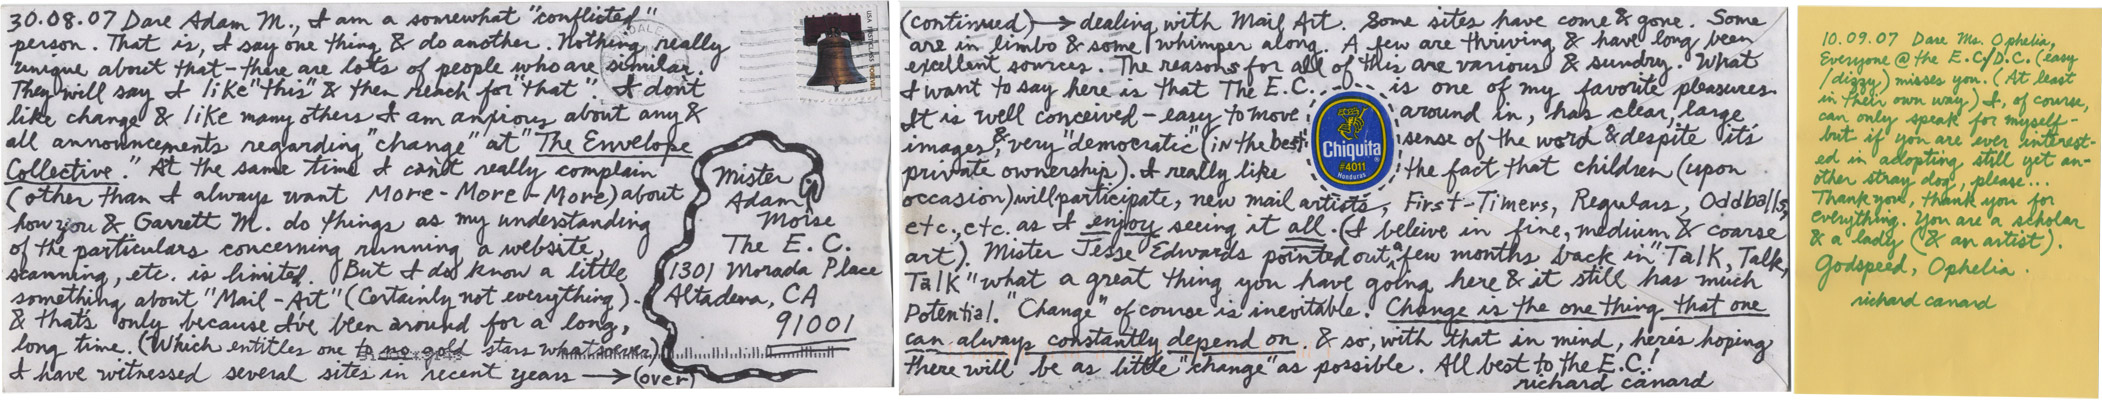 30.08.07 Dare Adam M., I am a somewhat "conflicted"
person. That is, I say one thing & do another. Nothing really
unique about that - there are lots of people who are similar.
They will say I like "this" & then reach for "that". I don't
like change & like many others I am anxious about any &
all announcements regarding "change" at "The Envelope
Collective." At the same time I can't really complain
(other than I always want More-More-More) about
how you & Garrett M. do things as my understanding
of the particulars concerning running a website,
scanning, etc. is limited. But I do know a little
something about "Mail-Art" (Certainly not everything).
& that's only because I've been around for a long,
long time. (Which entitles one to no gold stars whatsoever)
I have witnessed several sites in recent years → (over)
USA FIRST-CLASS FOREVER
Mister
Adam
Morse
The E. C.
1301 Morada Place
Altadena, CA
91001
(continued) → dealing with Mail Art. Some sites have come & gone. Some
are in limbo & some whimper along. A few are thriving & have long been
excellent sources. The reasons for all of this are various & sundry. What
I want to say here is that The E.C. is one of my favorite pleasures.
It is well conceived - easy to move around in, has clear, large
images, & very "democratic" (in the best sense of the word & despite its
private ownership). I really like the fact that children (upon
occasion) will participate, new mail artists, First-Timers, Regulars, Oddballs,
etc., etc. as I enjoy seeing it all. (I beleive in fine, medium & coarse
art). Mister Jesse Edwards pointed out a few months back in "Talk, Talk,
Talk" what a great thing you have going here & it still has much
Potential. "Change" of course is inevitable. Change is the one thing that one
can always constantly depend on. & so, with that in mind, here's hoping
there will be as little "change" as possible. All best to the E.C.!
richard canard
Chiquita
#4011
Honduras
10.09.07 Dare Ms. Ophelia,
Everyone @ the E.C./D.C. (easy
/dizzy) misses you. (At least
in their own way) I, of course,
can only speak for myself-
but if you are ever interest-
ed in adopting still yet an-
other stray dog, please...
Thank you, thank you for
everything. You are a scholar
& a lady (& an artist).
Godspeed, Ophelia.
richard canard